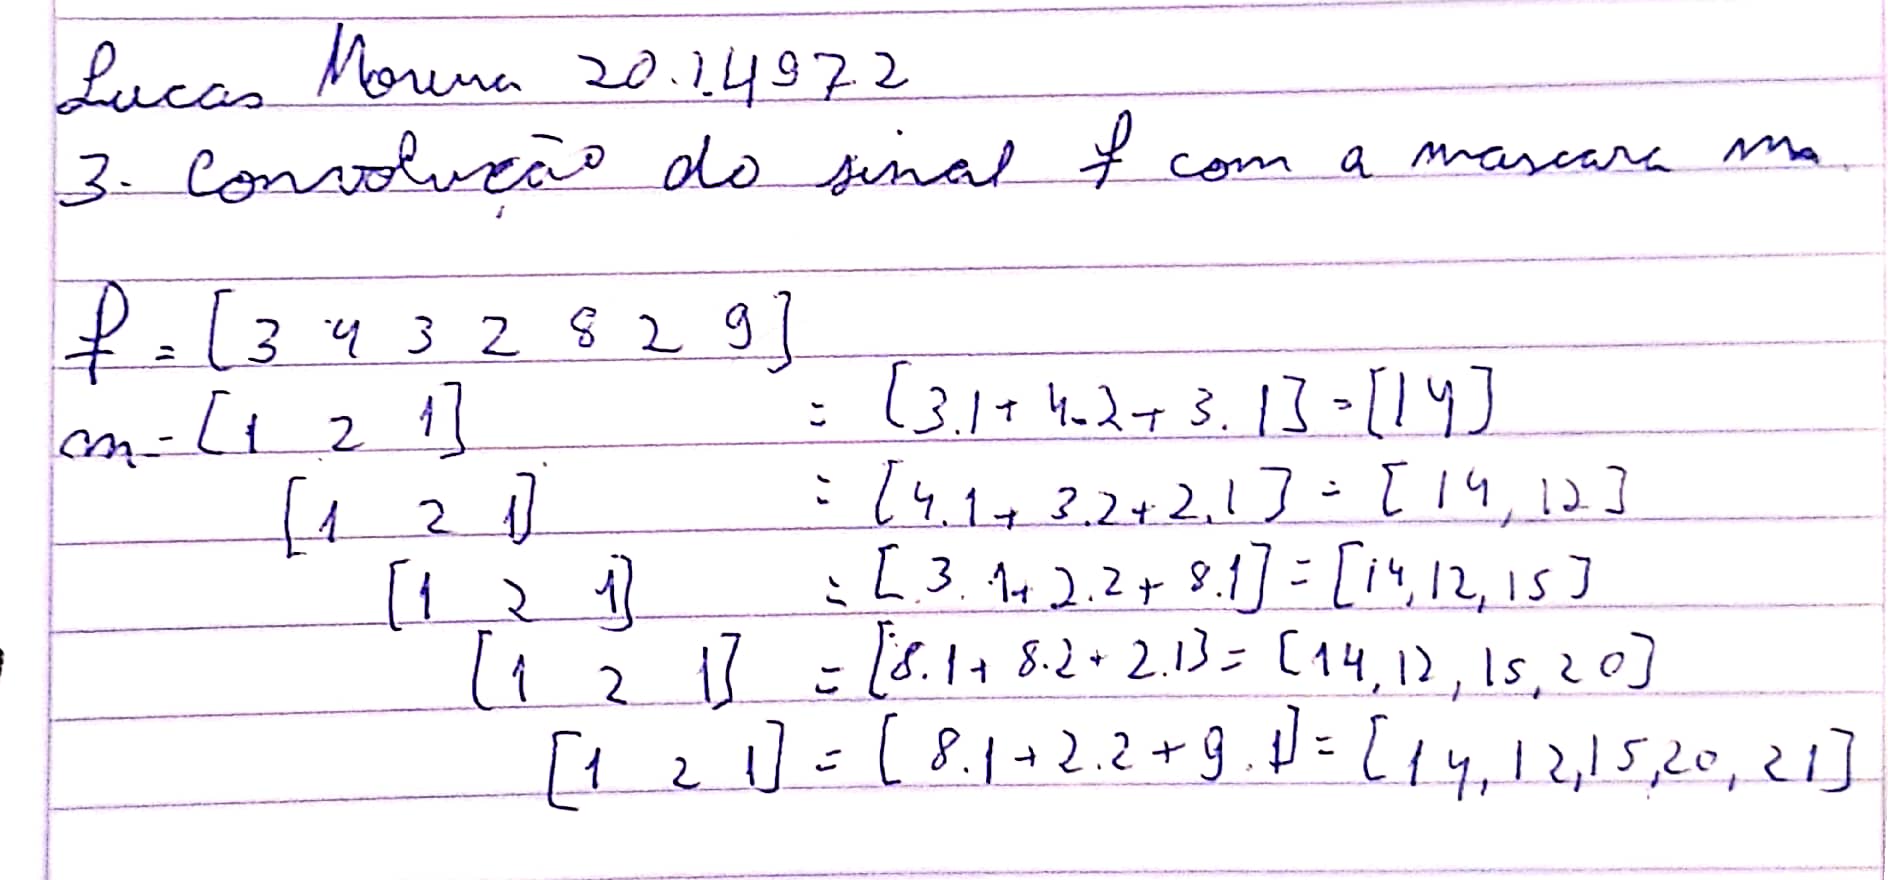 Lucas Moreira 20.1.4972
3. Convolução do sinal f com a mascara m
f = [3 4 3 2 8 2 9]
m = [1 2 1] = [3.1 + 4.2 + 3.1] = [14]
[1 2 1] = [4.1 + 3.2 + 2.1] = [14, 12]
[1 2 1] = [3.1 + 2.2 + 8.1] = [14, 12, 15]
[1 2 1] = [8.1 + 8.2 + 2.1] = [14, 12, 15, 20]
[1 2 1] = [8.1 + 2.2 + 9.1] = [14, 12, 15, 20, 21]